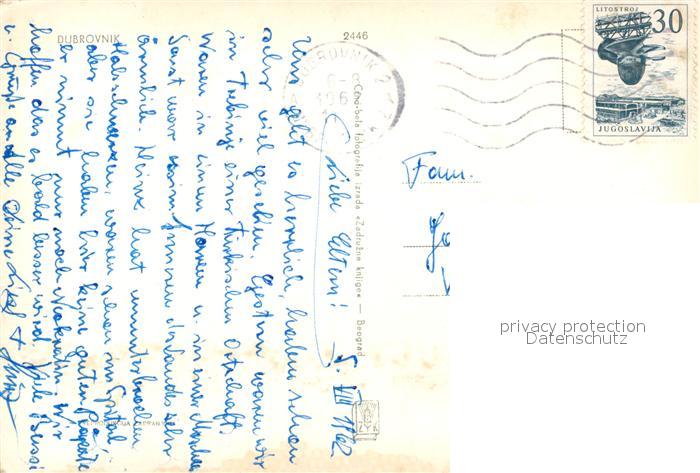 DUBROVNIK
2446
LITOSTROJ
30
JUGOSLAVIJA
DUBROVNIK 2
Crno-bela fotografija izrada »Zadružne knjige« — Beograd
ZK
Fam.
privacy protection
Datenschutz
5. VIII 1962
Liebe Eltern!
Uns geht es herrlich, haben schon
sehr viel gesehen. Gestern waren wir
in Trebinje einer türkischen Ortschaft,
waren in einem Harem u. in einer Moschee
Sonst war
ärmlich. Heinz hat ununterbrochen
Halsschmerzen, waren schon im Spital
aber sie haben hier kein guten Präparate
er nimmt nur noch wir
hoffen das es bald besser wird. Viele Bussi
u. Grüße an alle Eure